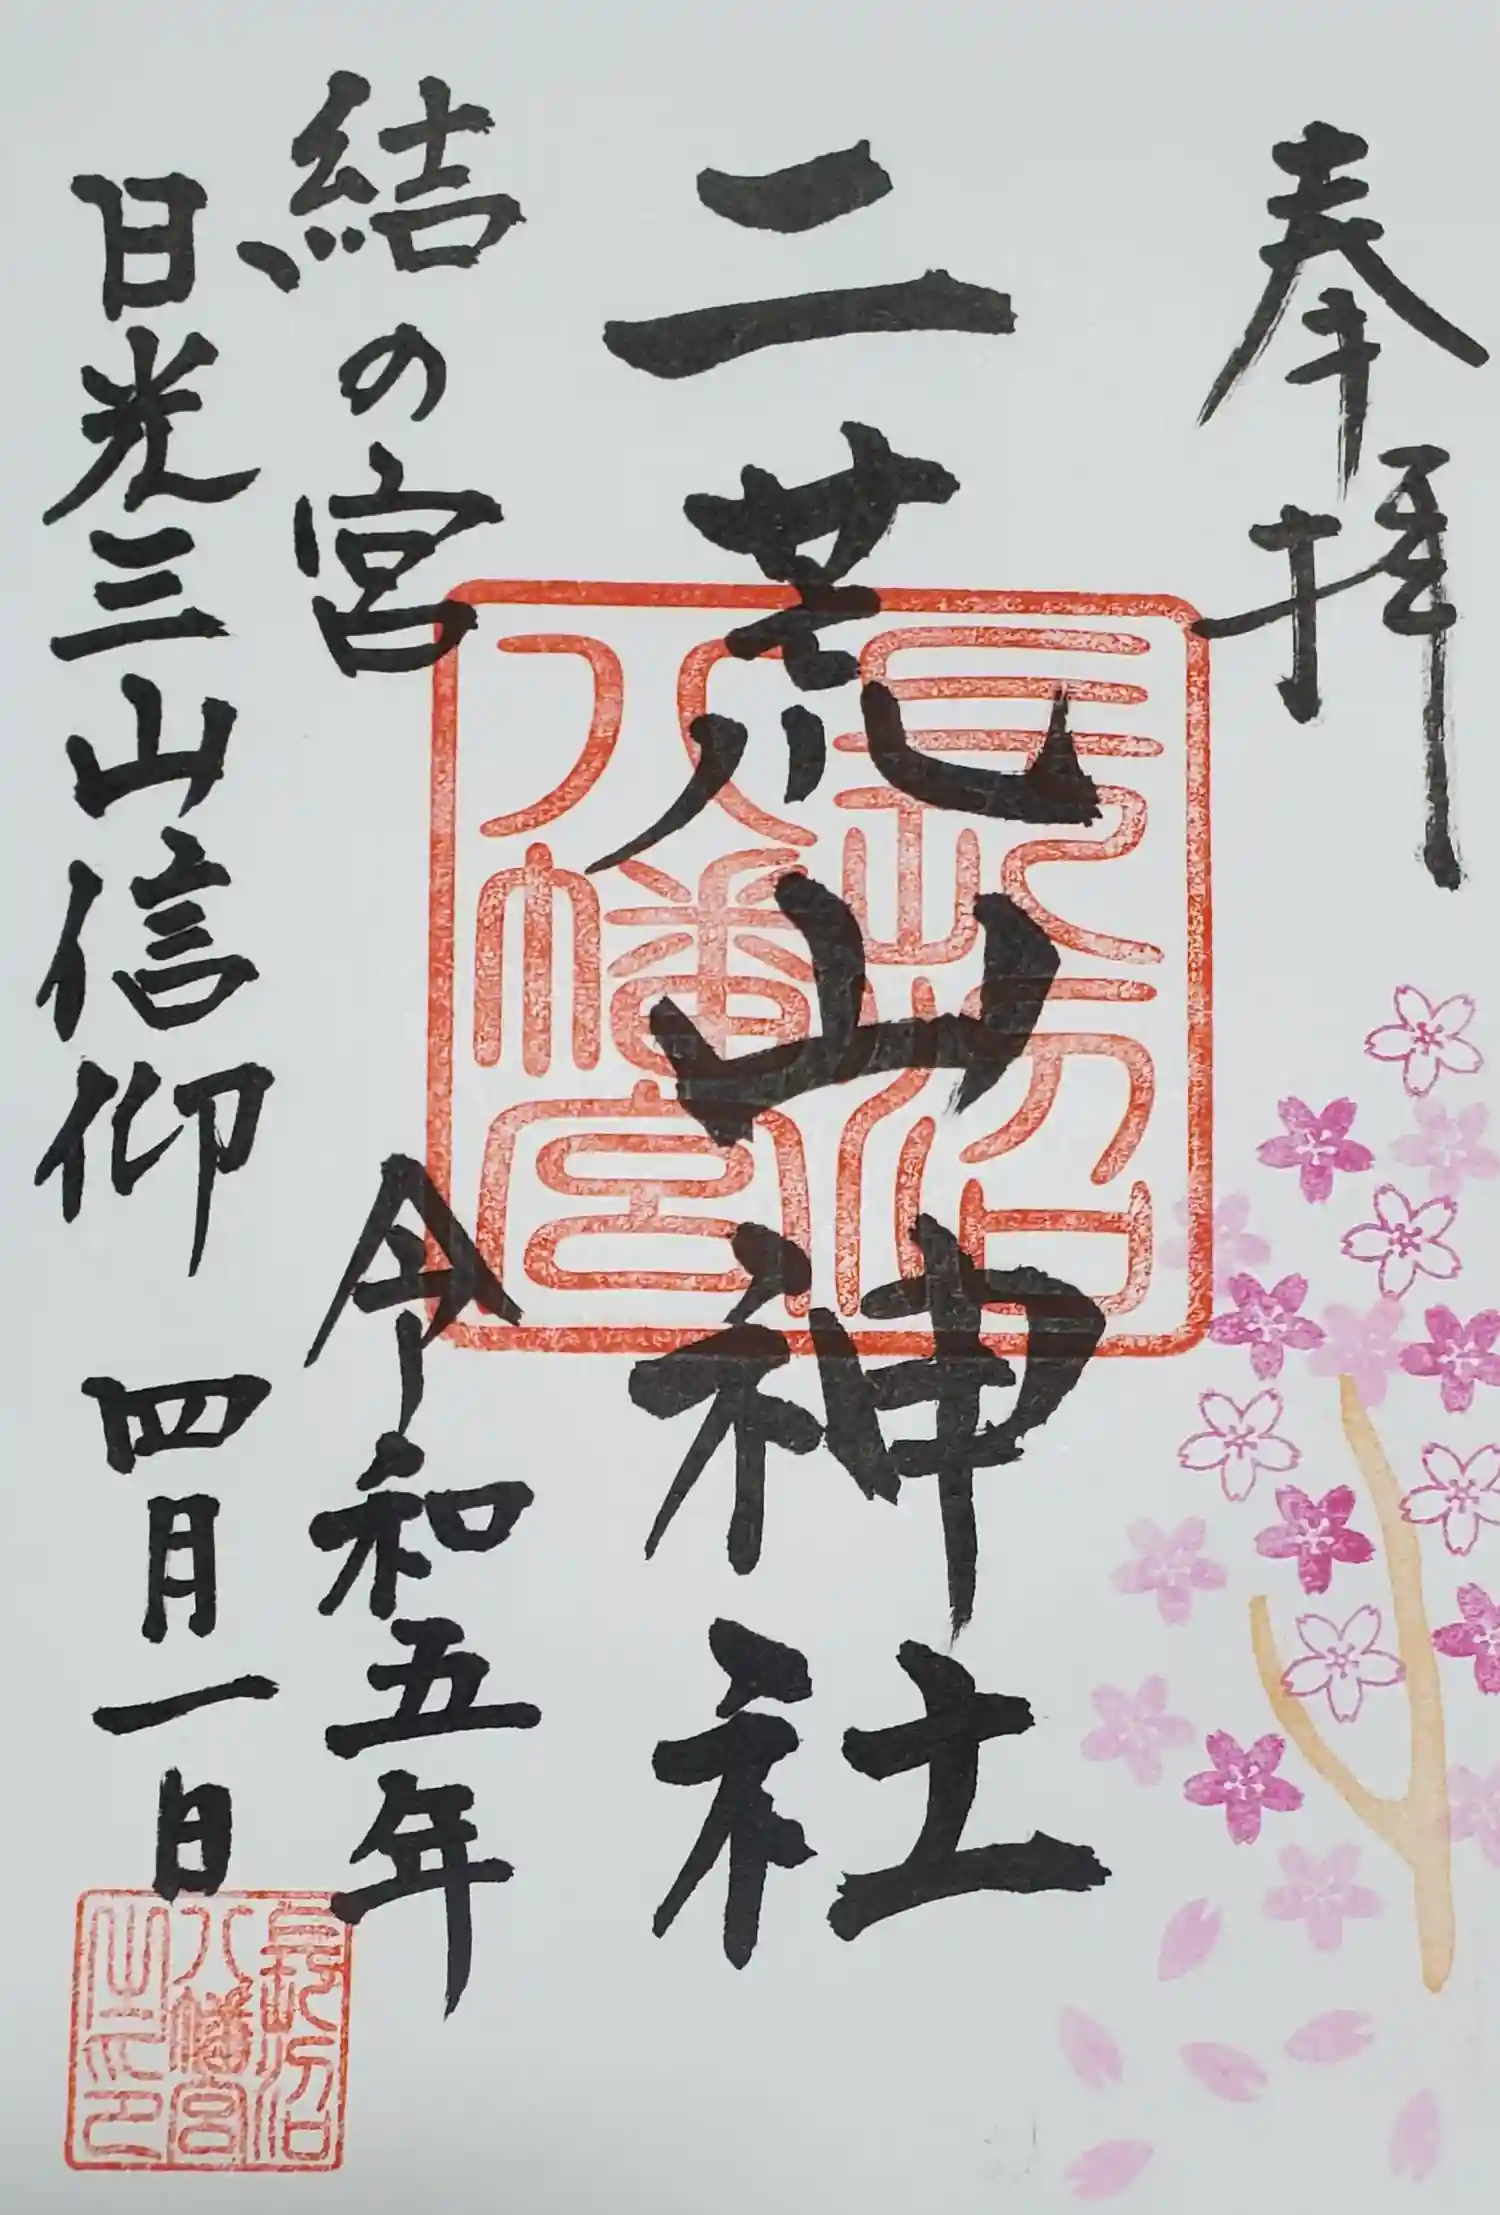 奉拝
二荒山神社
長沼
八幡宮
結の宮
令和五年
日光三山信仰
四月一日
長沼
八幡宮
之印